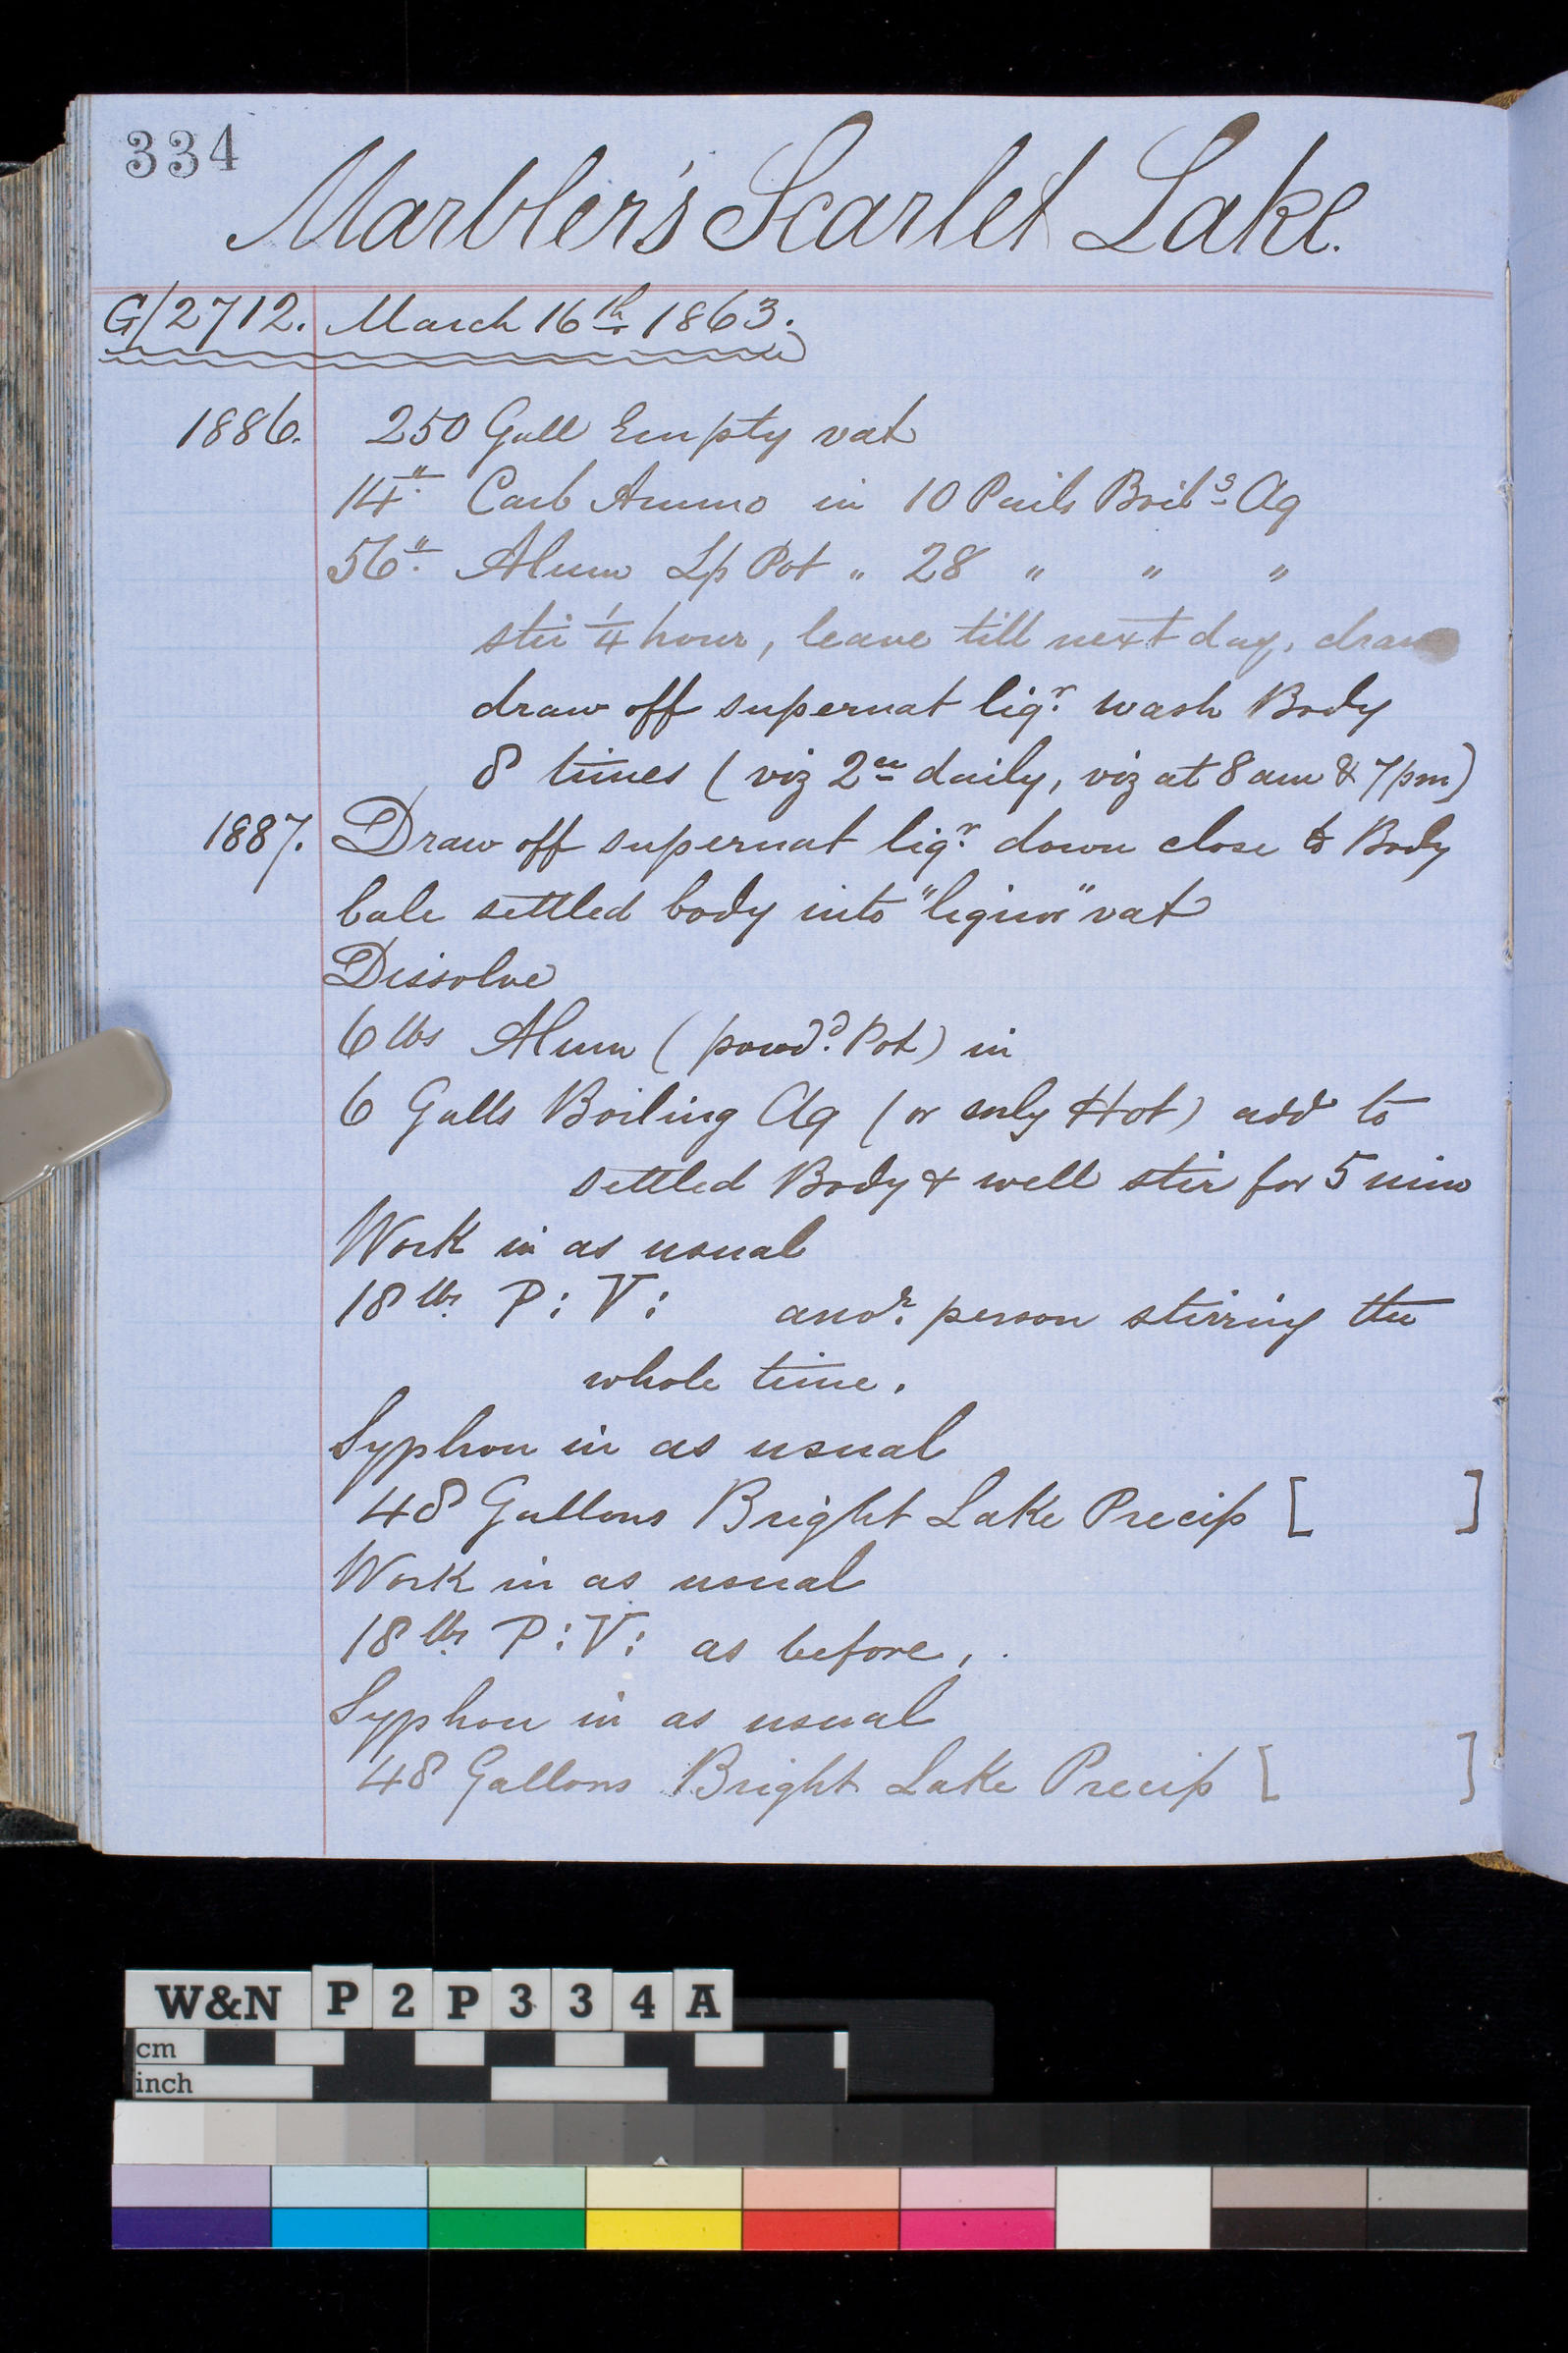 334
Marbler's Scarlet Lake.
G/2712. March 16th 1863.
1886. 250 Gall Empty vat
14" Carb Ammo in 10 Pails Boilg Aq
56" Alum Lp Pot " 28 " " "
stir 1/4 hour, leave till next day, draw
draw off supernat liqr. wash Body
8 times ( viz 2ce daily, viz at 8 am & 7 pm)
1887. Draw off supernat liqr. down close to Body
bale settled body into "liquor" vat
Dissolve
6 lbs Alum ( powdd. Pot) in
6 Galls Boiling Aq ( or only Hot) add to
settled Body & well stir for 5 min
Work in as usual
18 lbs P: V: anor. person stirring the
whole time.
Syphon in as usual
48 Gallons Bright Lake Precip [ ]
Work in as usual
18 lbs P: V: as before, .
Syphon in as usual
48 Gallons Bright Lake Precip [ ]
W&N P2P334A
cm
inch